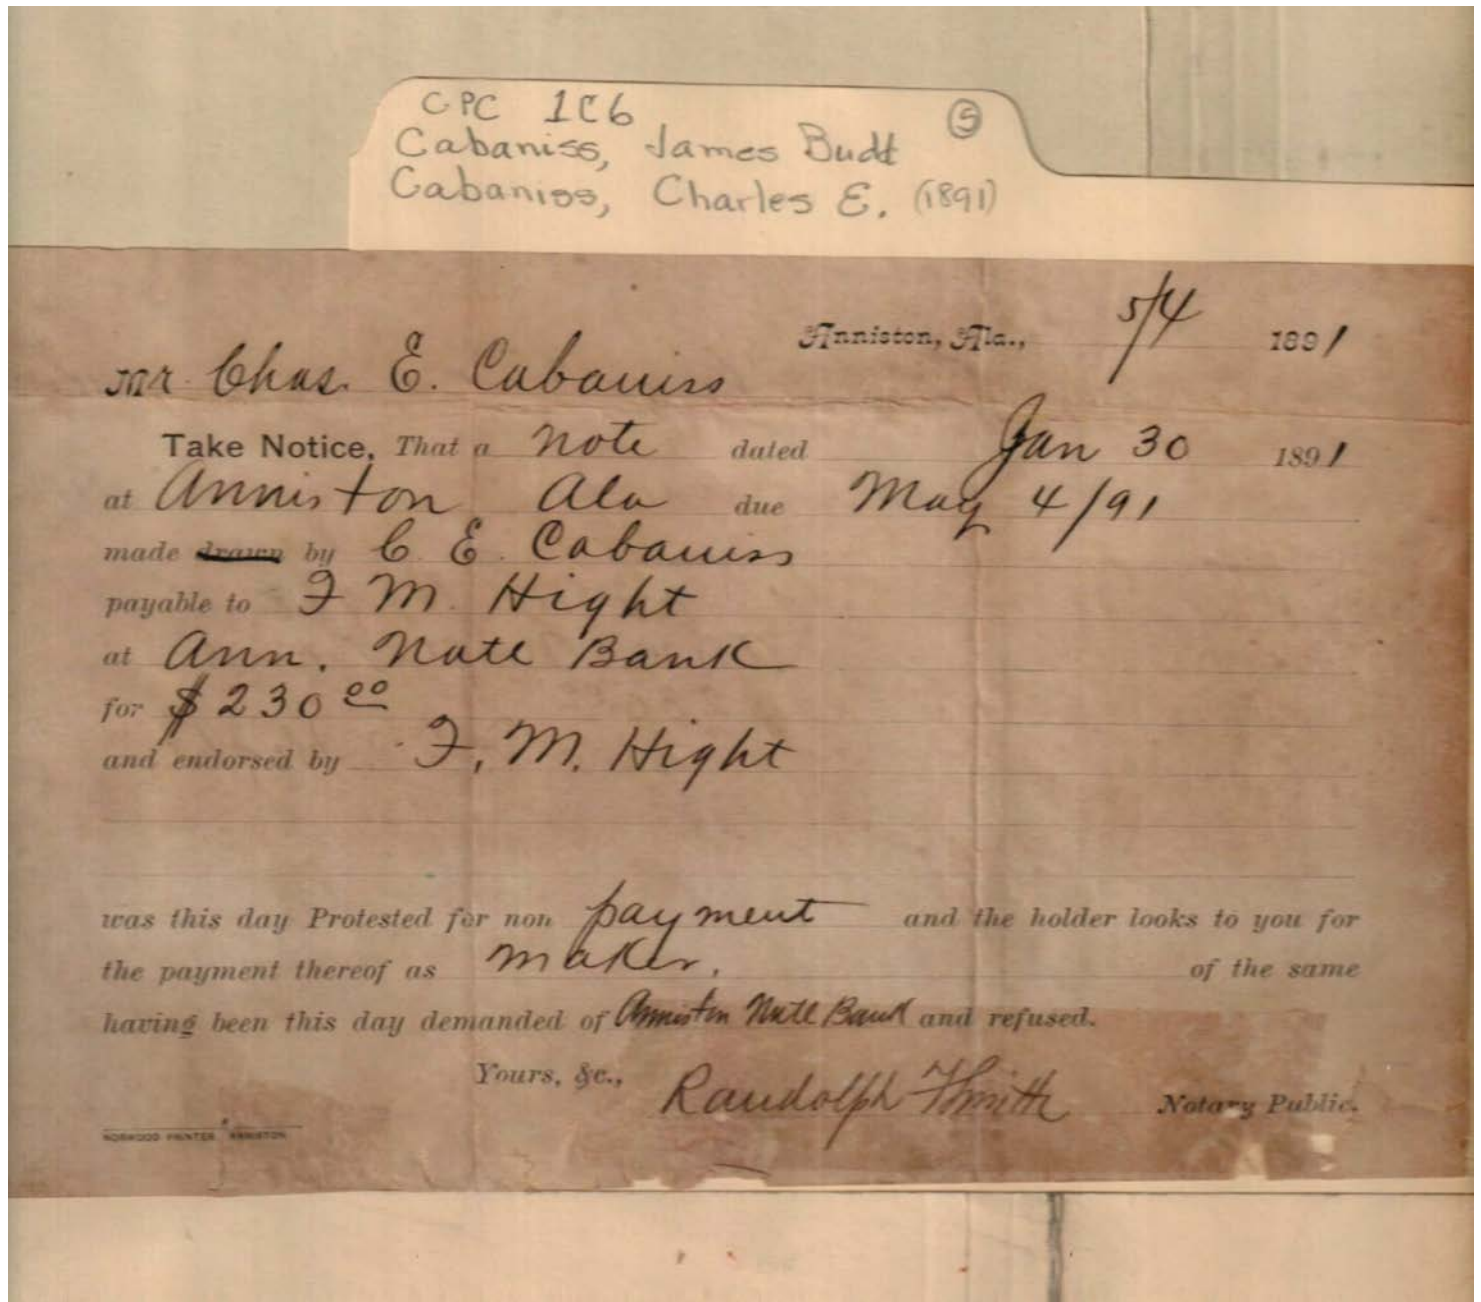 CPC 1C6 5
Cabaniss, James Budd
Cabaniss, Charles E. (1891)
Anniston, Ala., 5/4 1891
Mr Chas. E. Cabaniss
Take Notice, That a Note dated Jan 30 1891
at Anniston Ala due May 4/91
made drawn by C. E. Cabaniss
payable to F M. Hight
at Ann. Natl Bank
for $230 00
and endorsed by F. M. Hight
was this day Protested for non payment and the holder looks to you for
the payment thereof as maker, of the same
having been this day demanded of Anniston Natl Bank and refused.
Yours, &c., Randolph Smith Notary Public.
NORWOOD PRINTER ANNISTON